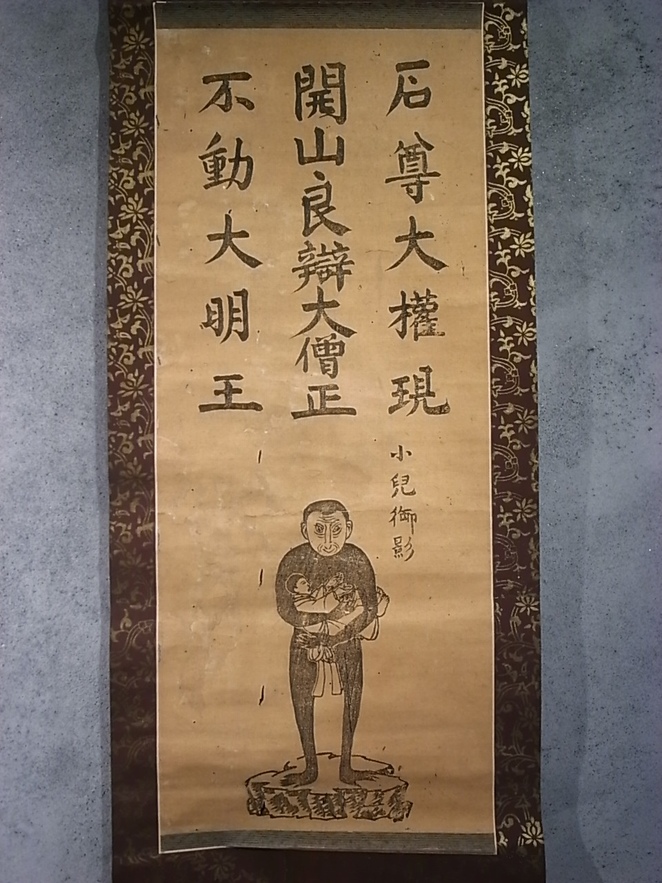 石尊大權現
小兒御影
開山良辯大僧正
不動大明王